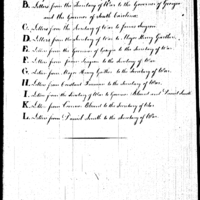 B. Letters from the Secretary of War to the Governor of Georgia
and the Governor of South Carolina.
C. Letters from the Secretary of War to James Seagrove.
D. Letters from the Secretary of War to Major Henry Gaither.
E. Letters from the Governor of Georgia to the Secretary of War.
F. Letters from James Seagrove to the Secretary of War.
G. Letters from Major Henry Gaither to the Secretary of War.
H. Letters from Constant Freeman to the Secretary of War.
I. Letters from the Secretary of War to Governor Blount and Daniel Smith
K. Letters from Governor Blount to the Secretary of War.
L. Letters from Daniel Smith to the Secretary of War.